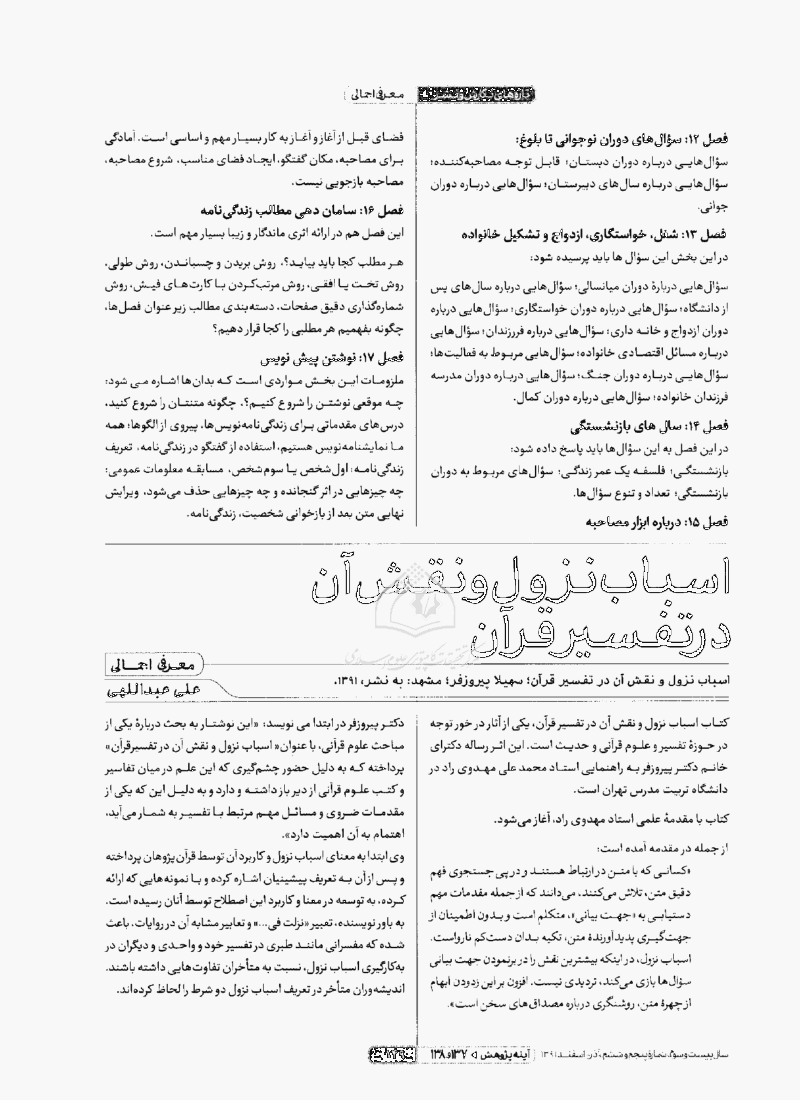 معرفی اجمالی
فصل ۱۲: سؤال‌های دوران نوجوانی تا بلوغ:
سؤال‌هایی درباره دوران دبستان؛ قابل توجه مصاحبه‌کننده؛
سؤال‌هایی درباره سال‌های دبیرستان؛ سؤال‌هایی درباره دوران
جوانی.
فصل ۱۳: شغل، خواستگاری، ازدواج و تشکیل خانواده
در این بخش این سؤال ها باید پرسیده شود:
سؤال‌هایی دربارهٔ دوران میانسالی؛ سؤال‌هایی درباره سال‌های پس
از دانشگاه؛ سؤال‌هایی درباره دوران خواستگاری؛ سؤال‌هایی درباره
دوران ازدواج و خانه داری؛ سؤال‌هایی درباره فرزندان؛ سؤال‌هایی
درباره مسائل اقتصادی خانواده؛ سؤال‌هایی مربوط به فعالیت‌ها؛
سؤال‌هایی درباره دوران جنگ؛ سؤال‌هایی درباره دوران مدرسه
فرزندان خانواده؛ سؤال‌هایی درباره دوران کمال.
فصل ۱۴: سال های بازنشستگی
در این فصل به این سؤال‌ها باید پاسخ داده شود:
بازنشستگی؛ فلسفه یک عمر زندگی؛ سؤال‌های مربوط به دوران
بازنشستگی؛ تعداد و تنوع سؤال‌ها.
فصل ۱۵: درباره ابزار مصاحبه
فضای قبل از آغاز و آغاز به کار بسیار مهم و اساسی است. آمادگی
برای مصاحبه، مکان گفتگو، ایجاد فضای مناسب، شروع مصاحبه،
مصاحبه بازجویی نیست.
فصل ۱۶: سامان دهی مطالب زندگی‌نامه
این فصل هم در ارائه اثری ماندگار و زیبا بسیار مهم است.
هر مطلب کجا باید بیاید؟، روش بریدن و چسباندن، روش طولی،
روش تخت یا افقی، روش مرتب‌کردن با کارت‌های فیش، روش
شماره‌گذاری دقیق صفحات، دسته‌بندی مطالب زیر عنوان فصل‌ها،
چگونه بفهمیم هر مطلبی را کجا قرار دهیم؟
فصل ۱۷: نوشتن پیش نویس
ملزومات این بخش مواردی است که بدان‌ها اشاره می شود:
چه موقعی نوشتن را شروع کنیم؟، چگونه متنتان را شروع کنید،
درس‌های مقدماتی برای زندگی‌نامه‌نویس‌ها، پیروی از الگوها؛ همه
ما نمایشنامه‌نویس هستیم، استفاده از گفتگو در زندگی‌نامه، تعریف
زندگی‌نامه: اول‌شخص یا سوم‌شخص، مسابقه معلومات عمومی؛
چه چیزهایی در اثر گنجانده و چه چیزهایی حذف می‌شود، ویرایش
نهایی متن بعد از بازخوانی شخصیت، زندگی‌نامه.
اسباب نزول و نقش آن
در تفسیر قرآن
معرفی اجمالی
اسباب نزول و نقش آن در تفسیر قرآن؛ سهیلا پیروزفر؛ مشهد: به نشر، ۱۳۹۱.
علی عبداللهی
کتاب اسباب نزول و نقش آن در تفسیر قرآن، یکی از آثار در خور توجه
در حوزهٔ تفسیر و علوم قرآنی و حدیث است. این اثر رساله دکترای
خانم دکتر پیروزفر به راهنمایی استاد محمد علی مهدوی راد در
دانشگاه تربیت مدرس تهران است.
کتاب با مقدمهٔ علمی استاد مهدوی راد، آغاز می‌شود.
از جمله در مقدمه آمده است:
«کسانی که با متن در ارتباط هستند و در پی جستجوی فهم
دقیق متن، تلاش می‌کنند، می‌دانند که از جمله مقدمات مهم
دستیابی به «جهت بیانی»، متکلم است و بدون اطمینان از
جهت‌گیری پدیدآورندهٔ متن، تکیه بدان دست‌کم نارواست.
اسباب نزول، در اینکه بیشترین نقش را در برنمودن جهت بیانی
سؤال‌ها بازی می‌کند، تردیدی نیست. افزون بر این زدودن ابهام
از چهرهٔ متن، روشنگری درباره مصداق‌های سخن است».
دکتر پیروزفر در ابتدا می نویسد: «این نوشتار به بحث دربارهٔ یکی از
مباحث علوم قرآنی، با عنوان« اسباب نزول و نقش آن در تفسیرقرآن»
پرداخته که به دلیل حضور چشم‌گیری که این علم در میان تفاسیر
و کتب علوم قرآنی از دیر باز داشته و دارد و به دلیل این که یکی از
مقدمات ضروی و مسائل مهم مرتبط با تفسیر به شمار می‌آید،
اهتمام به آن اهمیت دارد».
وی ابتدا به معنای اسباب نزول و کاربرد آن توسط قرآن‌پژوهان پرداخته
و پس از آن به تعریف پیشینیان اشاره کرده و با نمونه‌هایی که ارائه
کرده، به توسعه در معنا و کاربرد این اصطلاح توسط آنان رسیده است.
به باور نویسنده، تعبیر «نزلت فی...» و تعابیر مشابه آن در روایات، باعث
شده که مفسرانی مانند طبری در تفسیر خود و واحدی و دیگران در
به‌کارگیری اسباب نزول، نسبت به متأخران تفاوت‌هایی داشته باشند.
اندیشه‌وران متأخر در تعریف اسباب نزول دو شرط را لحاظ کرده‌اند.
سال بیست و سوم، شماره پنجم و ششم، آذر- اسفند ۱۳۹۱
آینه پژوهش ۱۳۷و۱۳۸